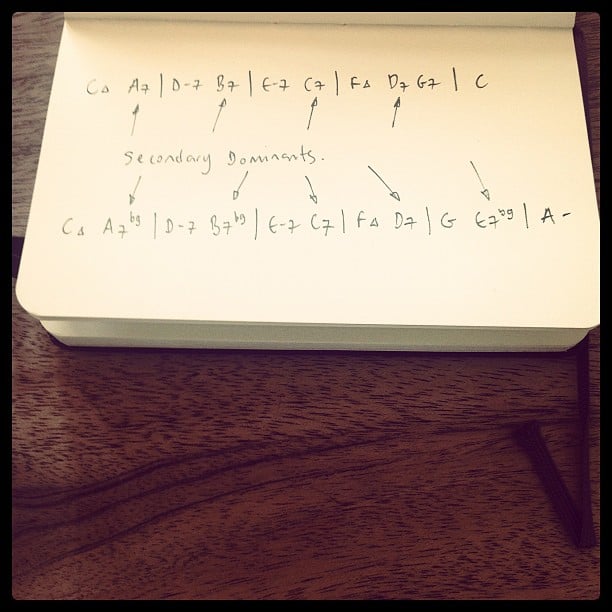 C△ A7 | D-7 B7 | E-7 C7 | F△ D7 G7 | C
Secondary Dominants.
C△ A7b9 | D-7 B7b9 | E-7 C7 | F△ D7 | G E7b9 | A-